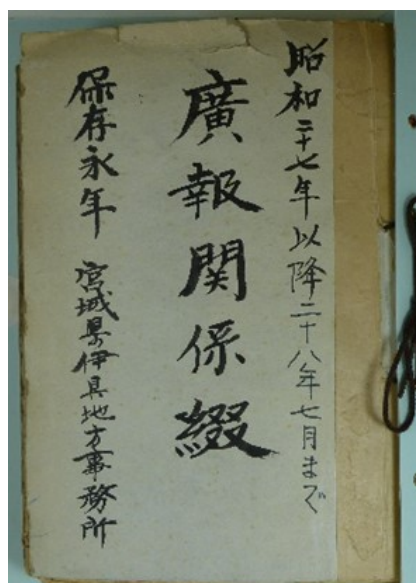 昭和二十七年以降二十八年七月まで
廣報関係綴
保存永年 宮城県伊具地方事務所